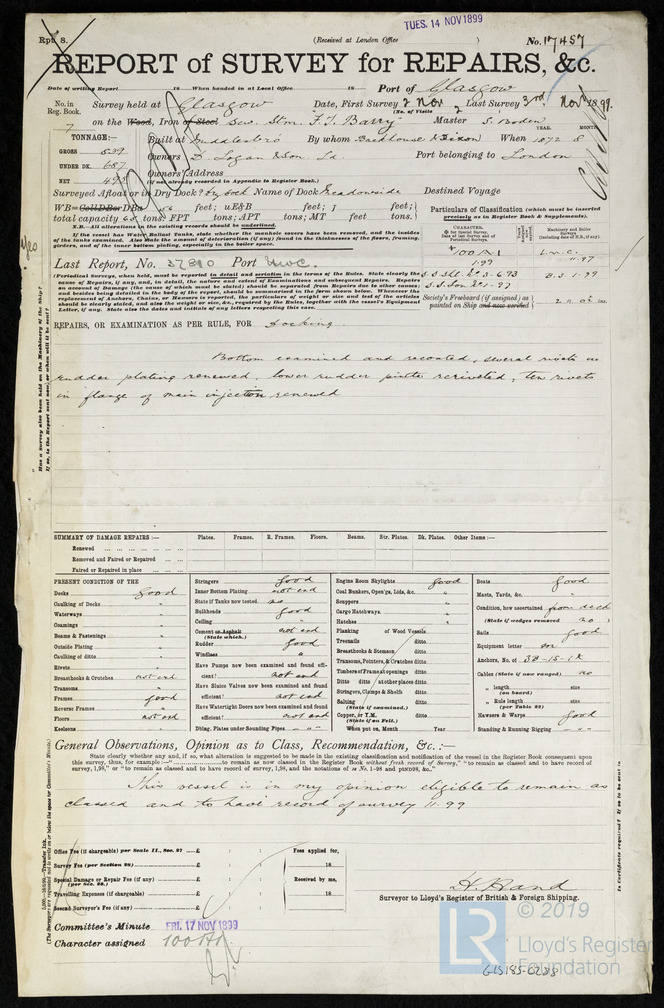 TUES. 14 NOV 1899
Rpt. 8.
(Received at London Office )
No. 17457
REPORT of SURVEY for REPAIRS, &c.
Date of writing Report 18 When handed in at Local Office 18 Port of Glasgow
No. in Reg. Book. Survey held at Glasgow Date, First Survey 2 Nov Last Survey 3rd Nov 1899
(No. of Visits 2
7 on the Wood, Iron or Steel Scw. Stm. F. T. Barry Master S. Boden
TONNAGE:— Built at Middlesbro By whom Backhouse & Dixon When 1872 8
YEAR. MONTH
GROSS 539 Owners D. Logan & Son Ld. Port belonging to London
UNDER DK. 657
NET 493 Owners' Address
(if not already recorded in Appendix to Register Book.)
Surveyed Afloat or in Dry Dock? Dry Dock Name of Dock Meadowside Destined Voyage
WB= CellDBor DBa feet; uE&B feet; f feet;
total capacity tons; FPT tons; APT tons; MT feet tons.
Particulars of Classification (which must be inserted precisely as in Register Book & Supplements).
N.B.—All alterations in the existing records should be underlined.
If the vessel has Water Ballast Tanks, state whether the manhole covers have been removed, and the insides
of the tanks examined. Also State the amount of deterioration (if any) found in the thicknesses of the floors, framing,
girders, and of the inner bottom plating, especially in the boiler space.
Last Report, No. 37890 Port Nwc.
100 A1
1.97
L.M.C. 11.97
(Periodical Surveys, when held, must be reported in detail and seriatim in the terms of the Rules. State clearly the
cause of Repairs, if any, and, in detail, the nature and extent of Examinations and subsequent Repairs. Repairs
on account of Damage (the cause of which must be stated) should be separated from Repairs due to other causes;
and besides being detailed in the body of the report, should be summarised in the form shown below. Whenever the
replacement of Anchors, Chains, or Hawsers is reported, the particulars of weight or size and test of the articles
should be clearly stated, and also the weight or size, &c., required by the Rules, together with the vessel's Equipment
Letter, if any. State also the dates and initials of any letters respecting this case.
B.S. 1.99
Society's Freeboard (if assigned) as painted on Ship and now verified
REPAIRS, OR EXAMINATION AS PER RULE, FOR Docking
Bottom examined and recoated, several rivets in
rudder plating renewed, lower rudder pintle reriveted, ten rivets
in flange of main injection renewed
SUMMARY OF DAMAGE REPAIRS:— Plates. Frames. R. Frames. Floors. Beams. Str. Plates. Dk. Plates. Other Items:—
Renewed
Removed and Faired or Repaired
Faired or Repaired in place
PRESENT CONDITION OF THE
Decks good
Caulking of Decks "
Waterways "
Coamings "
Beams & Fastenings "
Outside Plating "
Caulking of ditto "
Rivets "
Breasthooks & Crutches not exd
Transoms "
Frames good
Reverse Frames "
Floors not exd
Keelsons "
Stringers good
Inner Bottom Plating not exd
State if Tanks now tested no
Bulkheads good
Ceiling "
Cement or Asphalt not exd
(State which.)
Rudder good
Windlass "
Have Pumps now been examined and found efficient? not exd
Have Sluice Valves now been examined and found efficient? not exd
Have Watertight Doors now been examined and found efficient? not exd
Dblng. Plates under Sounding Pipes " "
Engine Room Skylights good
Coal Bunkers, Open'gs, Lids, &c. "
Scuppers "
Cargo Hatchways "
Hatches "
Planking of Wood Vessels
Treenails ditto
Breasthooks & Stemson ditto
Transoms, Pointers, & Crutches ditto
Timbers of Frame at openings ditto
Ditto ditto at other places ditto
Stringers, Clamps & Shelfs ditto
Salting ditto
(State if examined.)
Copper, or Y.M. ditto
(State if on Felt.)
When put on, Month Year
Boats good
Masts, Yards, &c. "
Condition, how ascertained from deck
(State if wedges removed no )
Sails good
Equipment letter
Anchors, No. of 3B-1S-1K
Cables (State if now ranged) no
" length size
(on board)
" Rule length size
(per Table 22)
Hawsers & Warps good
Standing & Running Rigging " "
General Observations, Opinion as to Class, Recommendation, &c.:—
State clearly whether any, and if so, what alteration is suggested to be made in the existing classification and notification of the vessel in the Register Book consequent upon
This vessel is in my opinion eligible to remain as
classed and to have record of survey 11.99
Office Fee (if chargeable) per Scale II., Sec. 27 £ : :
Fees applied for,
Survey Fee (per Section 28) £ : :
18
Special Damage or Repair Fee (if any) £ : :
(per Sec. 28.)
Received by me,
Travelling Expenses (if chargeable) £ : :
18
Second Surveyor's Fee (if any) £ : :
H. Hand
Surveyor to Lloyd's Register of British & Foreign Shipping.
Committee's Minute FRI. 17 NOV 1899
Character assigned 100 A1
© 2019
LR
Lloyd's Register
Foundation
GLS185-0238